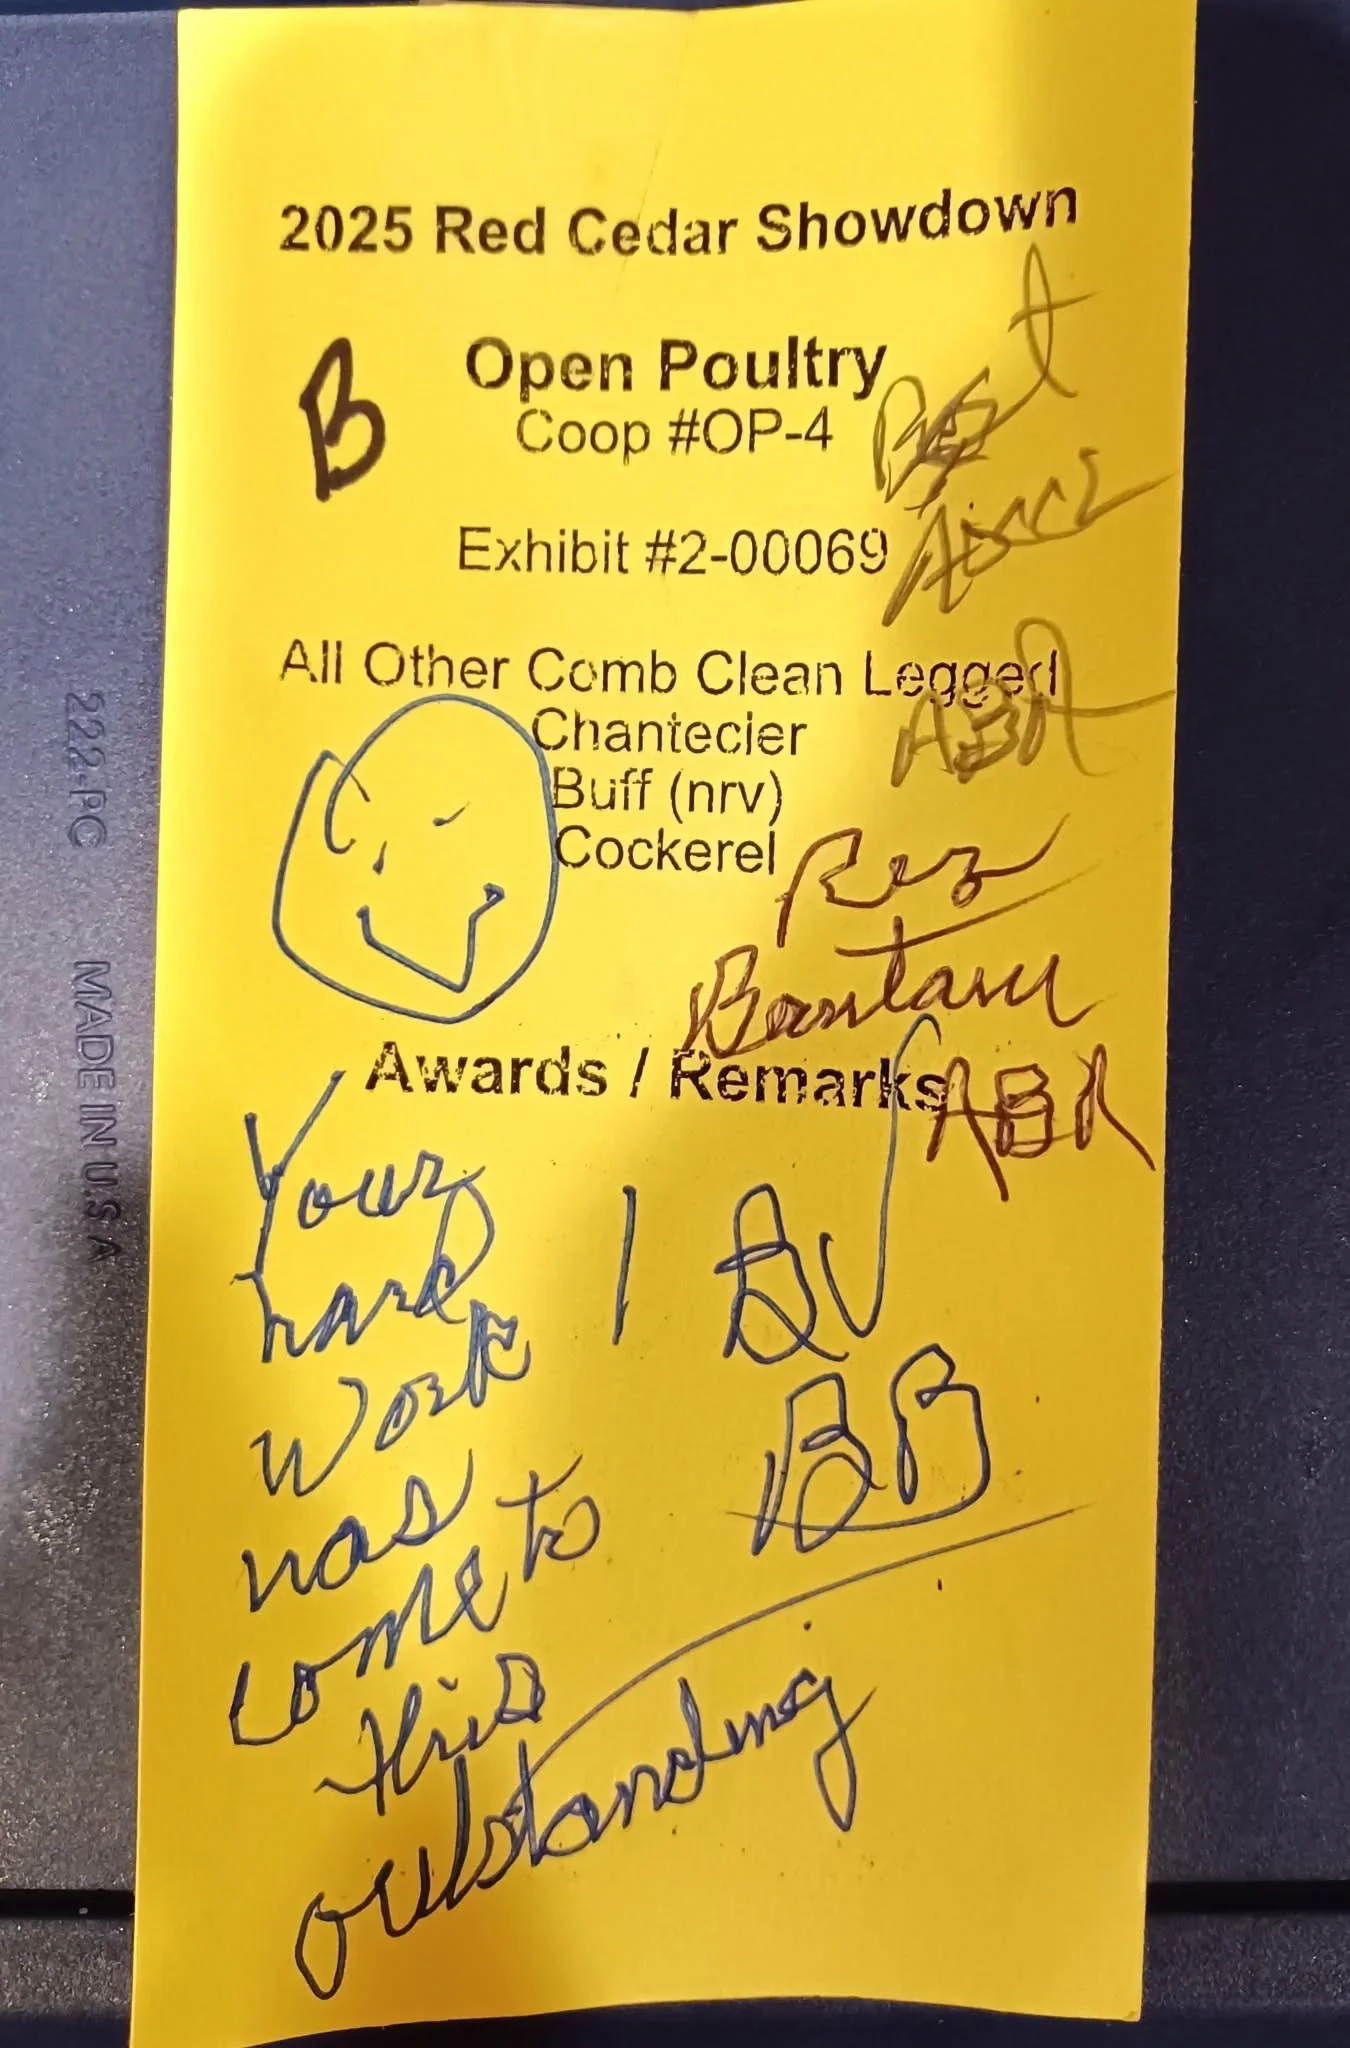 2025 Red Cedar Showdown
B
Open Poultry
Coop #OP-4
Best
AOCCL
Exhibit #2-00069
All Other Comb Clean Legged
ABA
Chantecler
Buff (nrv)
Cockerel
Res
Bantam
ABA
Awards / Remarks
Your
hard
work
has
come to
this
outstanding
1 BV
BB
222-PC MADE IN U.S.A